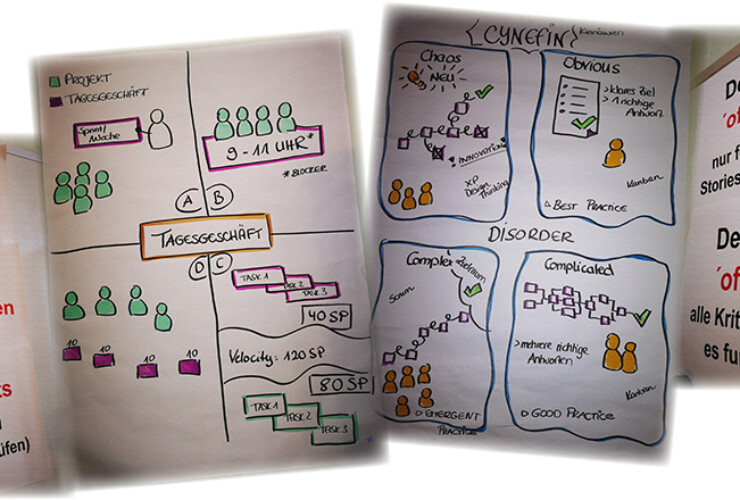 en
ks
üfen)
PROJEKT
TAGESGESCHÄFT
Sprint/
Woche
A
B
9-11 UHR*
*BLOCKER
TAGESGESCHÄFT
D
C
10
10
10
10
TASK 1
TASK 2
TASK 3
40 SP
Velocity: 120 SP
80 SP
TASK 1
TASK 2
TASK 3
{CYNEFIN}
Chaos
NEU
! INNOVATION !
XP
Design
Thinking
Obvious
> klares Ziel
> 1 richtige
Antwort
Kanban
BEST PRACTICE
DISORDER
Complex
Zielraum
Scrum
EMERGENT
PRACTICE
Complicated
> mehrere richtige
Antworten
Kanban
GOOD PRACTICE
De
'of
nur f
Stories
De
'of
alle Krit
es fu